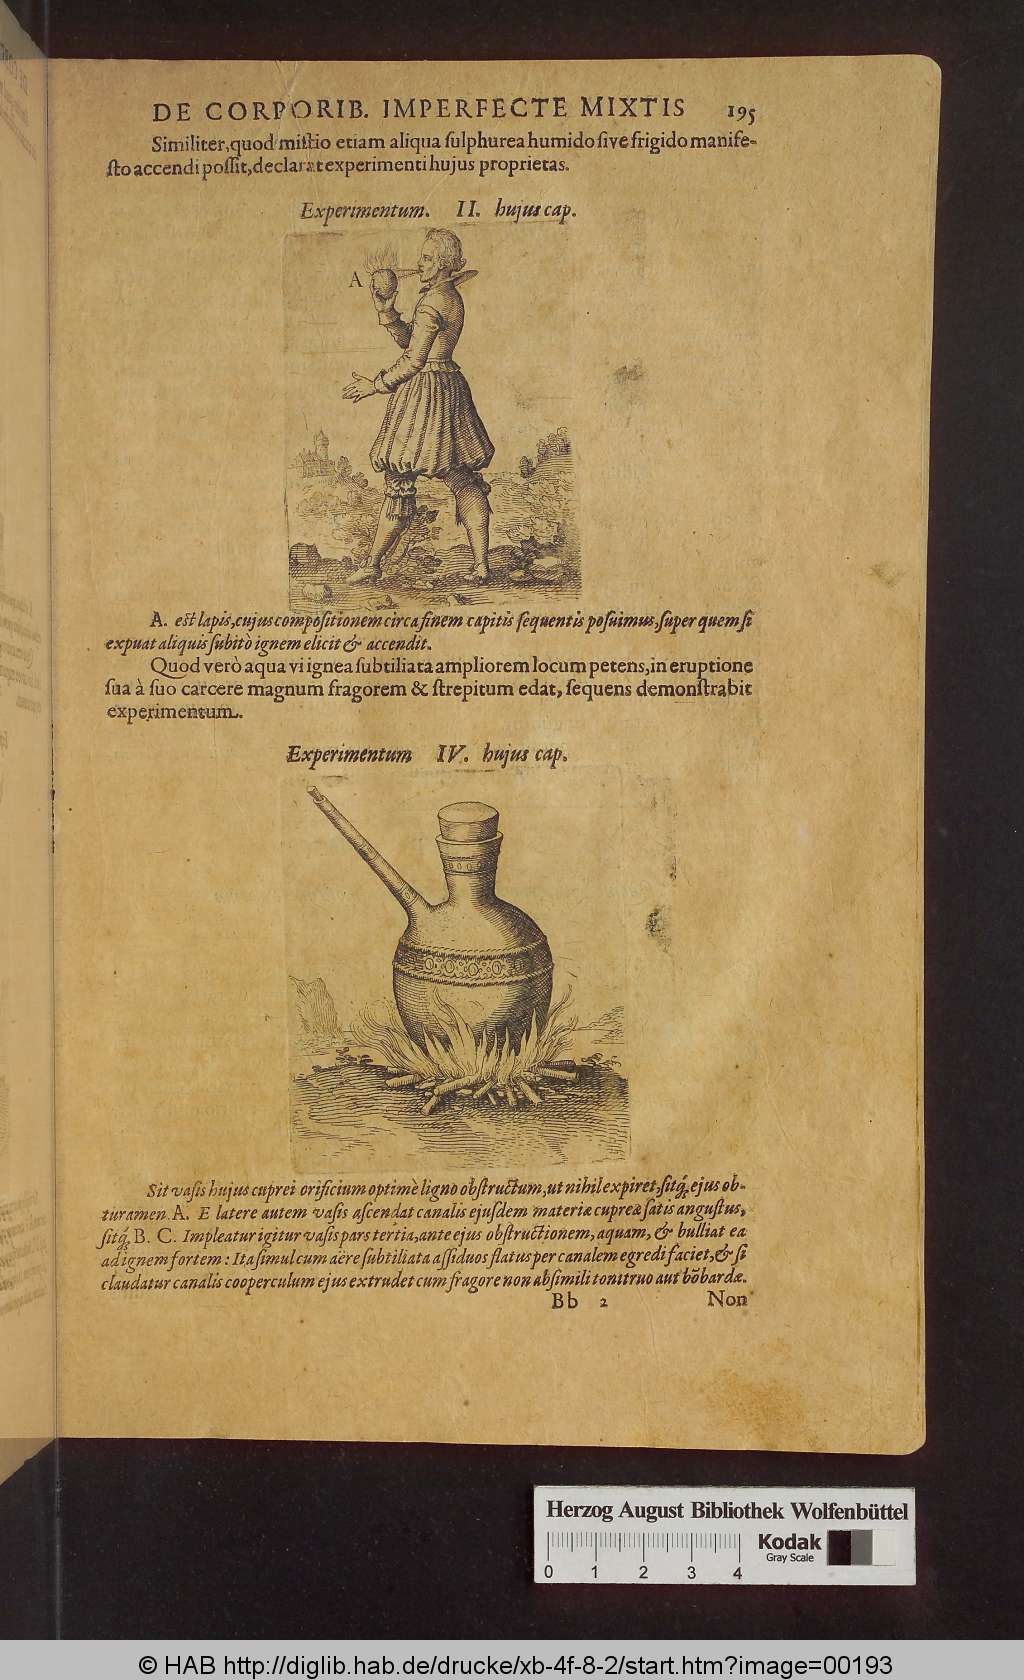 DE CORPORIB. IMPERFECTE MIXTIS 195
Similiter, quod mistio etiam aliqua sulphurea humido sive frigido manife-
sto accendi possit, declarat experimenti hujus proprietas.
Experimentum. II. hujus cap.
A
A. est lapis, cujus compositionem circa finem capitis sequentis posuimus, super quem si
expuat aliquis subitò ignem elicit & accendit.
Quod verò aqua vi ignea subtiliata ampliorem locum petens, in eruptione
sua à suo carcere magnum fragorem & strepitum edat, sequens demonstrabit
experimentum.
Experimentum IV. hujus cap.
Sit vasis hujus cuprei orificium optimè ligno obstructum, ut nihil expiret, sitq; ejus ob-
turamen A. E latere autem vasis ascendat canalis ejusdem materiæ cupreæ satis angustus,
sitq; B. C. Impleatur igitur vasis pars tertia, ante ejus obstructionem, aquam, & bulliat ea
ad ignem fortem: Ita simul cum aëre subtiliata assiduos flatus per canalem egredi faciet, & si
claudatur canalis cooperculum ejus extrudet cum fragore non absimili tonitruo aut bōbardæ.
Bb 2 Non
Herzog August Bibliothek Wolfenbüttel
Kodak
Gray Scale
0 1 2 3 4
© HAB http://diglib.hab.de/drucke/xb-4f-8-2/start.htm?image=00193